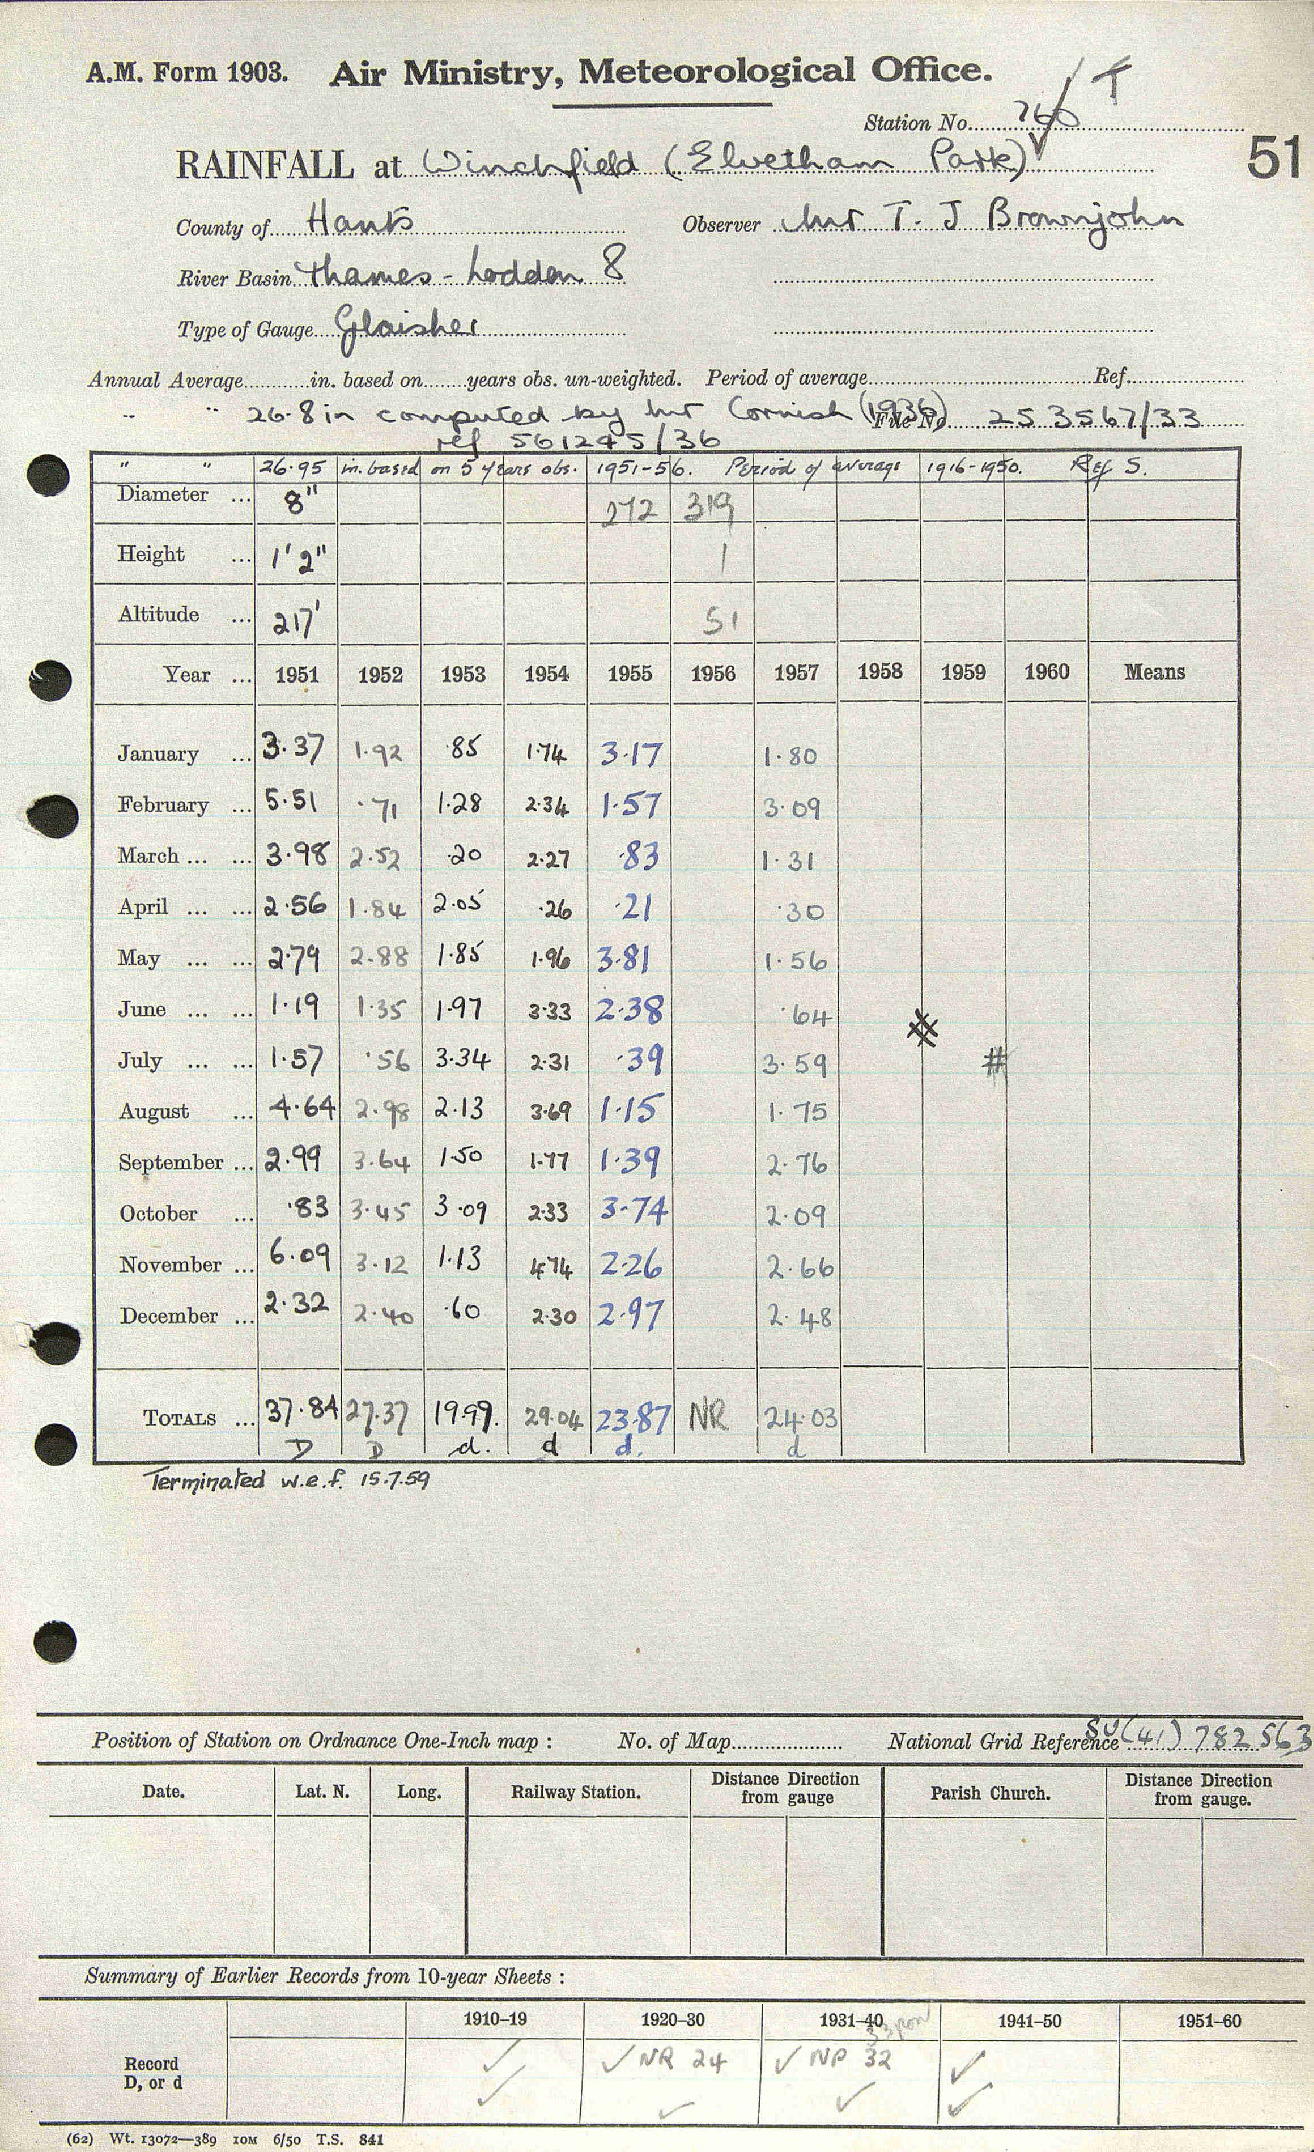 A.M. Form 1903. Air Ministry, Meteorological Office.
T
Station No. 760
51
RAINFALL at Winchfield (Elvetham Park)
County of Hants Observer Mr T. J Brownjohn
River Basin Thames - Loddon 8
Type of Gauge Glaisher
Annual Average in. based on years obs. un-weighted. Period of average Ref.
" " 26.8 in computed by Mr Cornish (1936) File No 253567/33
ref 561245/36
" " 26.95 in. based on 5 years obs. 1951-56. Period of average 1916-1950. Ref S.
Diameter ... 8" 272 319
Height ... 1' 2" 1
Altitude ... 217' 51
Year ... 1951 1952 1953 1954 1955 1956 1957 1958 1959 1960 Means
January ... 3.37 1.92 .85 1.74 3.17 1.80
February ... 5.51 .71 1.28 2.34 1.57 3.09
March ... ... 3.98 2.52 .20 2.27 .83 1.31
April ... ... 2.56 1.84 2.05 .26 .21 .30
May ... ... 2.79 2.88 1.85 1.96 3.81 1.56
June ... ... 1.19 1.35 1.97 3.33 2.38 .64
July ... ... 1.57 .56 3.34 2.31 .39 3.59 #
August ... 4.64 2.98 2.13 3.69 1.15 1.75
September ... 2.99 3.64 1.50 1.77 1.39 2.76
October ... .83 3.45 3.09 2.33 3.74 2.09
November ... 6.09 3.12 1.13 4.74 2.26 2.66
December ... 2.32 2.40 .60 2.30 2.97 2.48
TOTALS ... 37.84 27.37 19.99. 29.04 23.87 NR 24.03
D D d. d d. d
Terminated w.e.f. 15.7.59
Position of Station on Ordnance One-Inch map : No. of Map National Grid Reference SU (41) 782 563
Date. Lat. N. Long. Railway Station. Distance Direction from gauge Parish Church. Distance Direction from gauge.
Summary of Earlier Records from 10-year Sheets :
1910-19 1920-30 1931-40 1941-50 1951-60
Record ✓ ✓ NR 24 ✓ NP 32 ✓
D, or d ✓ ✓ ✓ ✓
(62) Wt. 13072—389 10M 6/50 T.S. 841